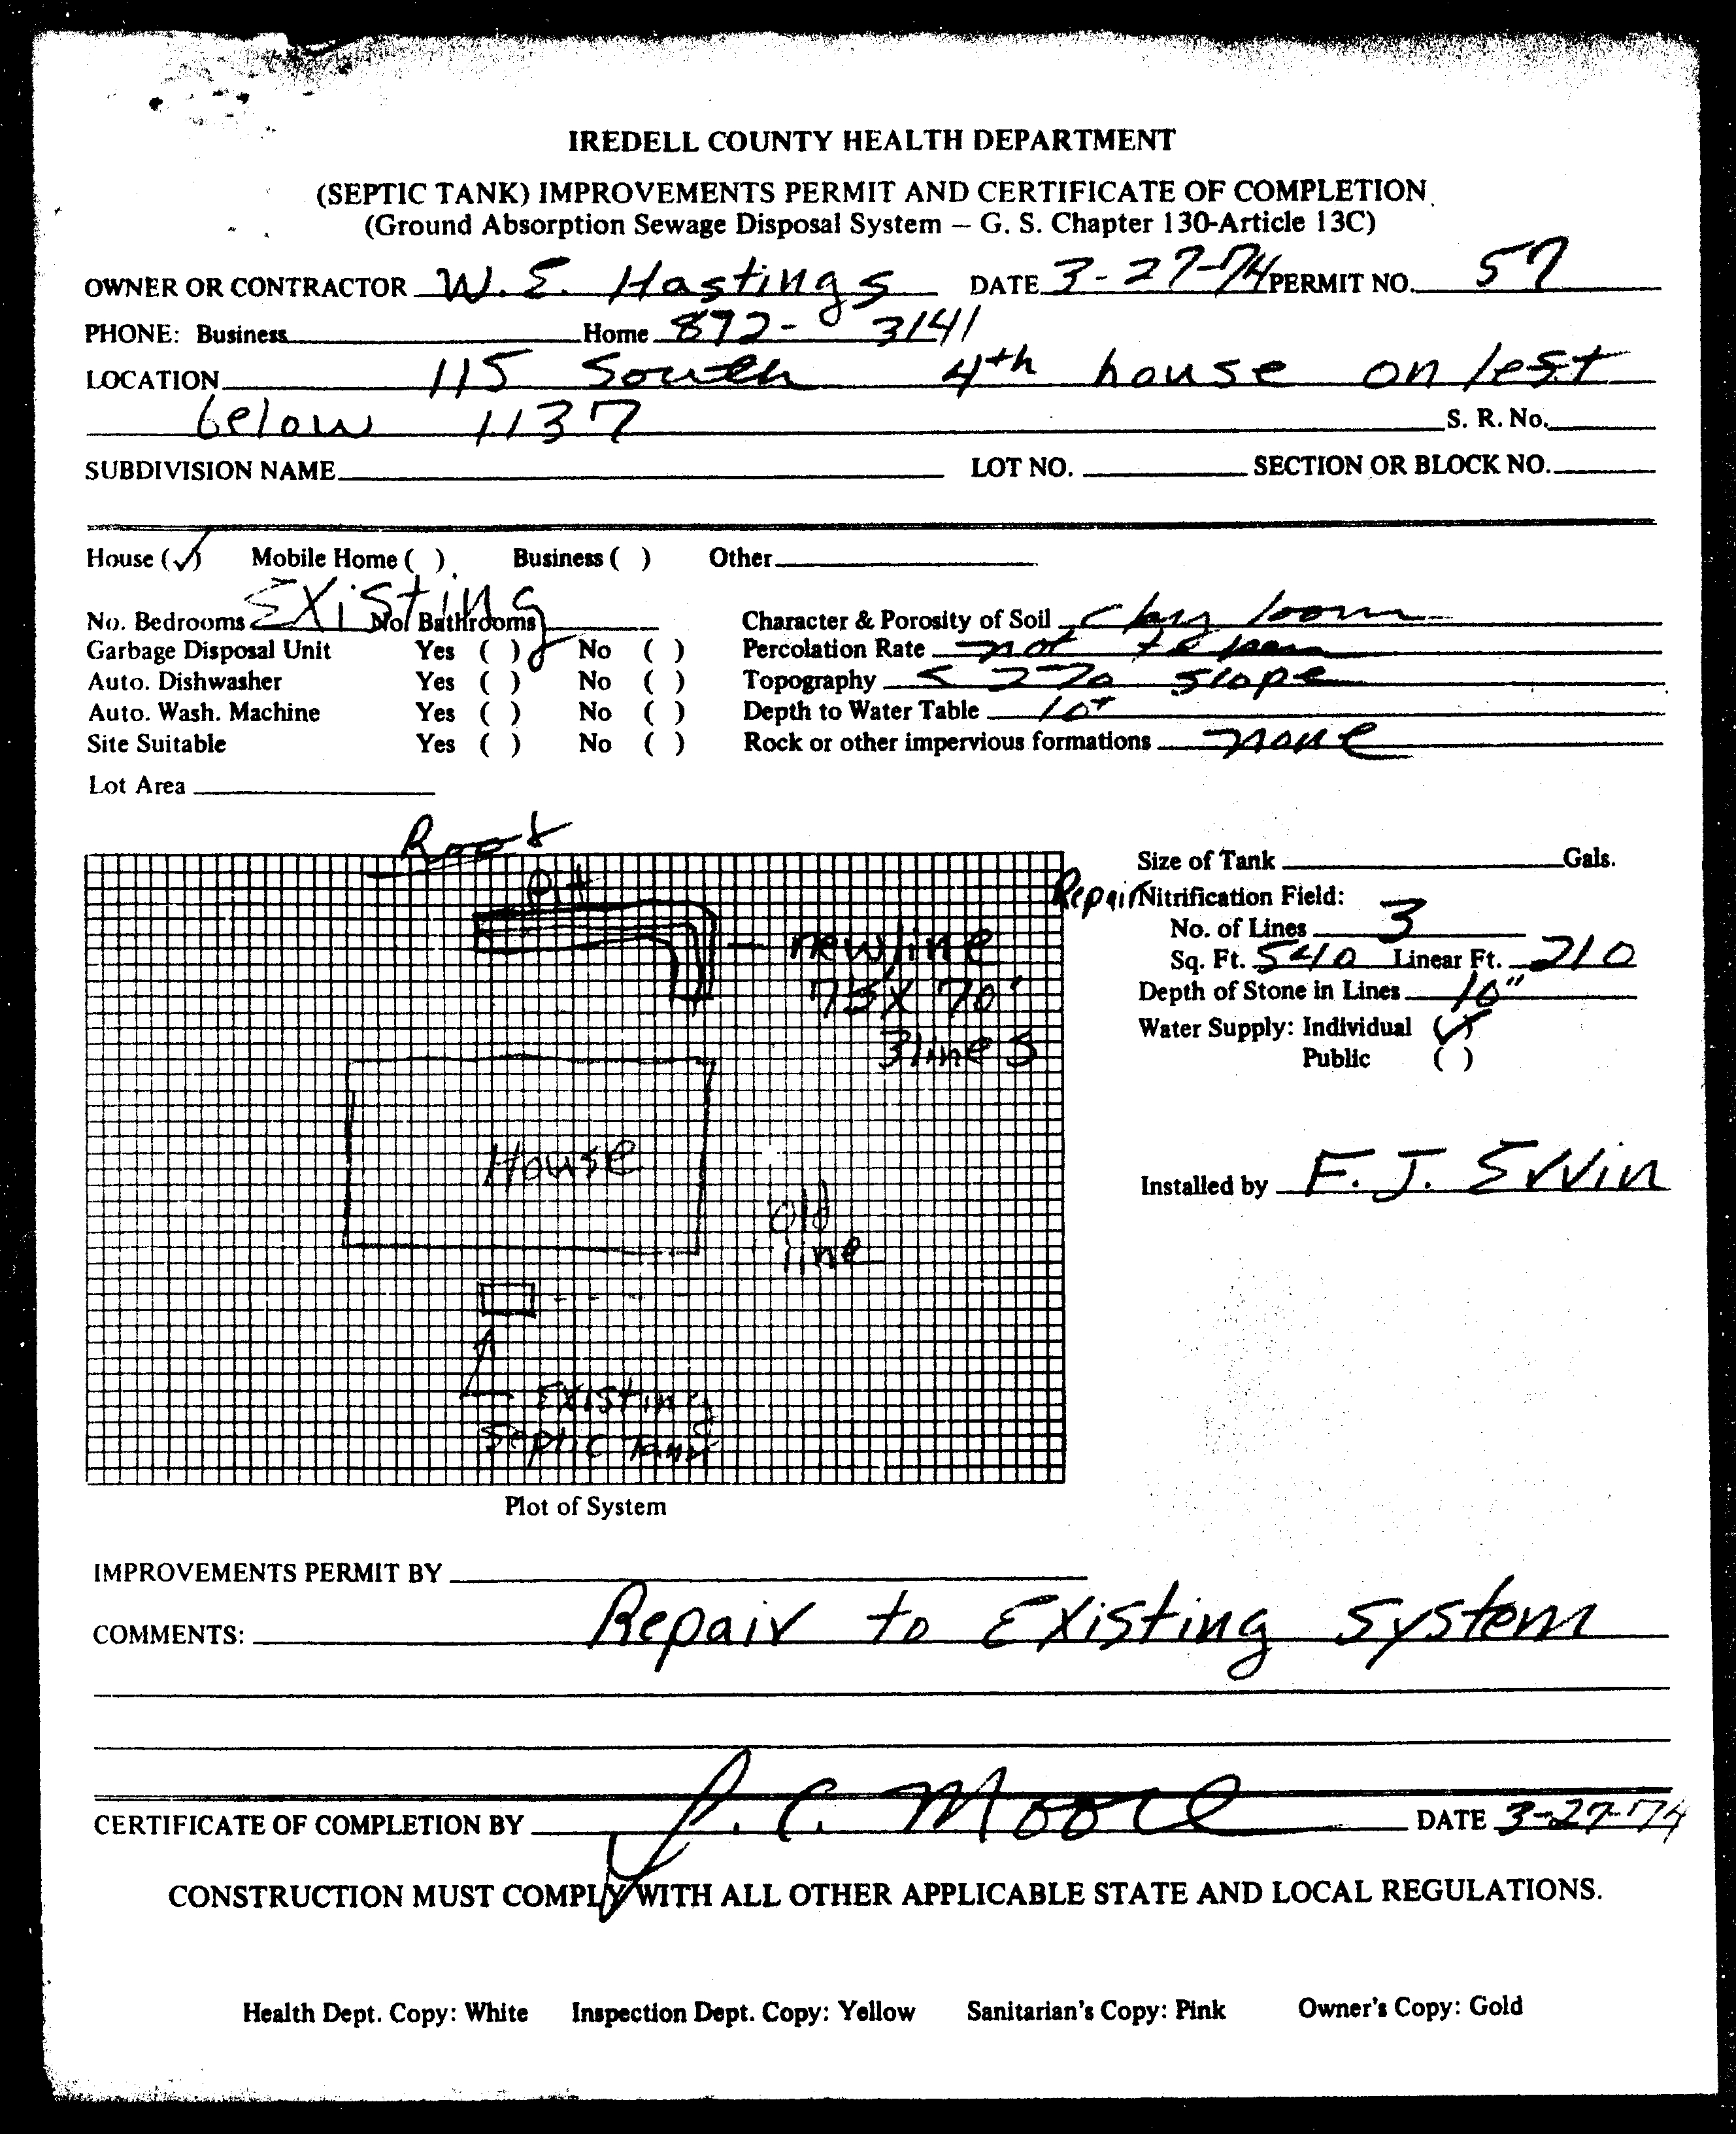 IREDELL COUNTY HEALTH DEPARTMENT
(SEPTIC TANK) IMPROVEMENTS PERMIT AND CERTIFICATE OF COMPLETION
(Ground Absorption Sewage Disposal System – G. S. Chapter 130-Article 13C)
OWNER OR CONTRACTOR W. E. Hastings DATE 3-27-74 PERMIT NO. 57
PHONE: Business Home 892-3141
LOCATION 115 South 4th house on left
below 1137 S. R. No.
SUBDIVISION NAME LOT NO. SECTION OR BLOCK NO.
House (✓) Mobile Home ( ) Business ( ) Other
No. Bedrooms Existing No. Bathrooms Character & Porosity of Soil clay loam
Garbage Disposal Unit Yes ( ) No ( ) Percolation Rate not taken
Auto. Dishwasher Yes ( ) No ( ) Topography < 2% slope
Auto. Wash. Machine Yes ( ) No ( ) Depth to Water Table 10+
Site Suitable Yes ( ) No ( ) Rock or other impervious formations none
Lot Area
Size of Tank Gals.
pit
Repair Nitrification Field:
No. of Lines 3
new line
Sq. Ft. 540 Linear Ft. 210
Depth of Stone in Lines 10"
70'
Water Supply: Individual (✓)
3 lines
Public ( )
House
Installed by F. J. Ervin
old
line
Existing
Septic Tank
Plot of System
IMPROVEMENTS PERMIT BY
COMMENTS: Repair to Existing system
CERTIFICATE OF COMPLETION BY J. C. Moore DATE 3-27-74
CONSTRUCTION MUST COMPLY WITH ALL OTHER APPLICABLE STATE AND LOCAL REGULATIONS.
Health Dept. Copy: White Inspection Dept. Copy: Yellow Sanitarian's Copy: Pink Owner's Copy: Gold